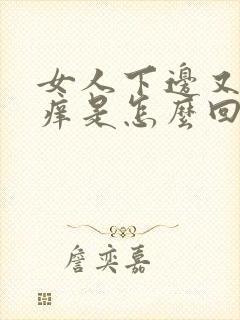 女人下邊又
癢是怎麼回
詹奕嘉